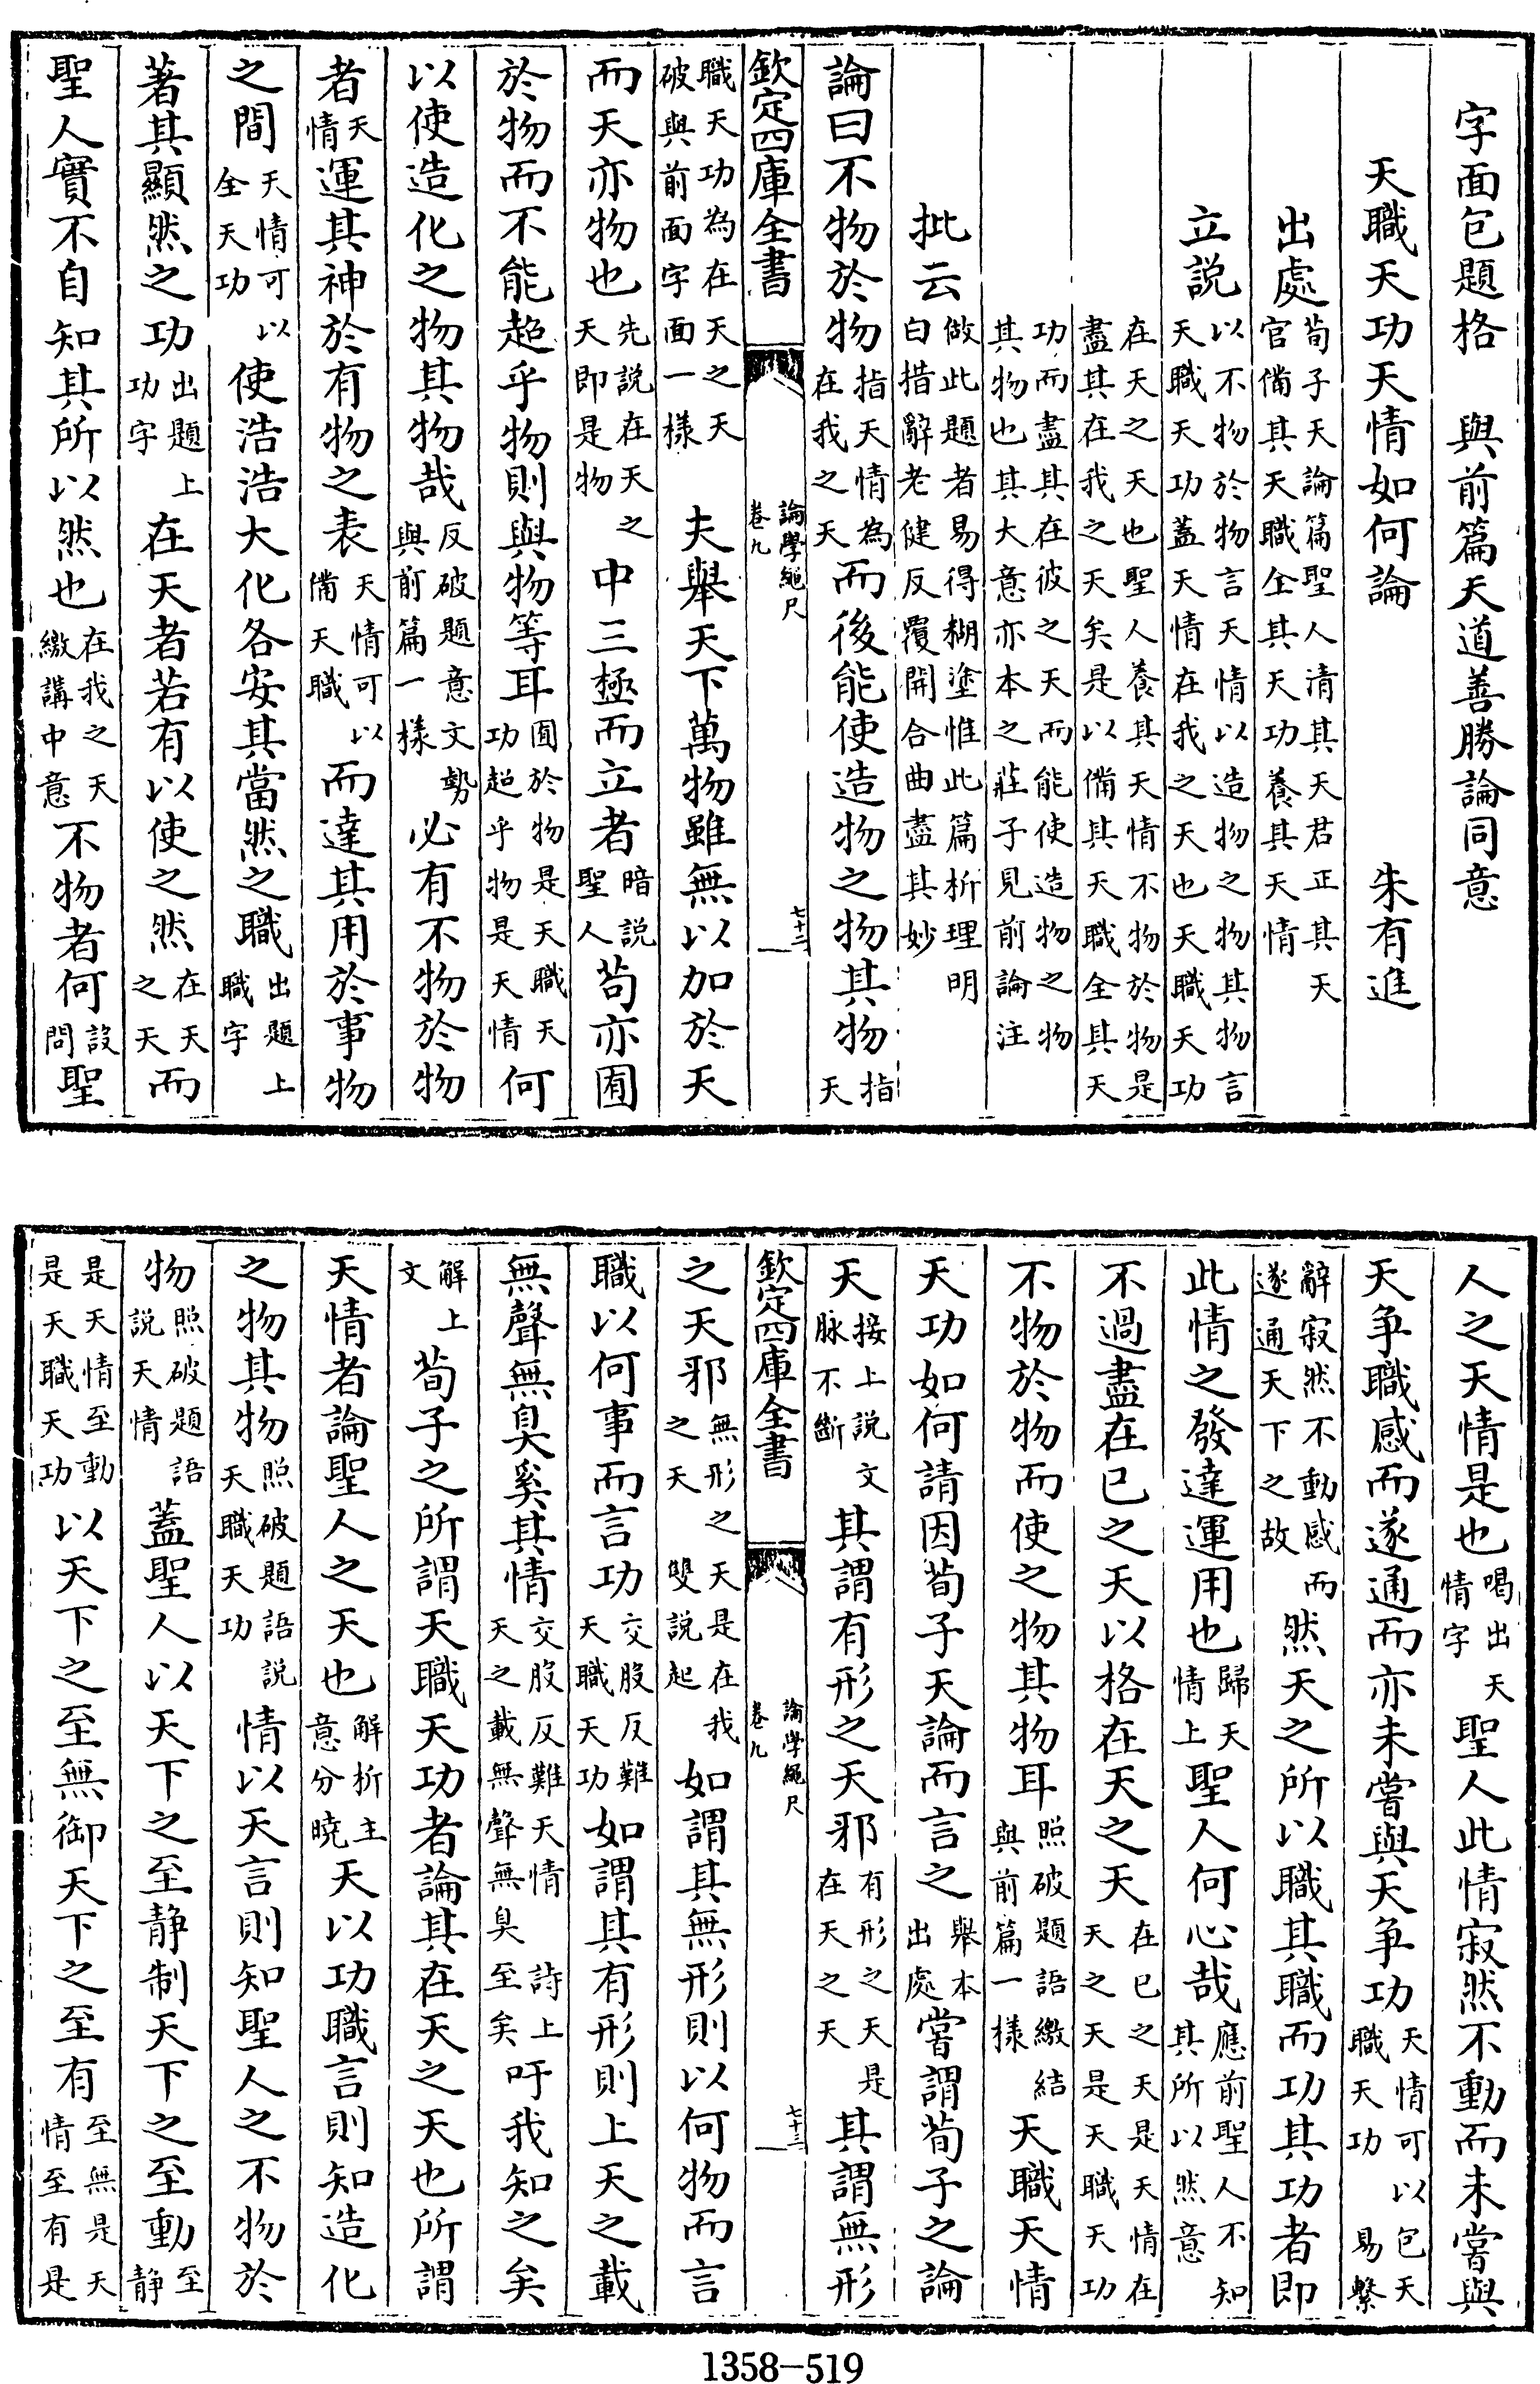 字面包題格　與前篇天道善勝論同意
天職天功天情如何論　朱有進
出處荀子天論篇聖人清其天君正其天官備其天職全其天功養其天情
立説以不物於物言天情以造物之物其物言天職天功蓋天情在我之天也天職天功
在天之天也聖人養其天情不物於物是盡其在我之天矣是以備其天職全其天
功而盡其在彼之天而能使造物之物其物也其大意亦本之莊子見前論注
批云做此題者易得糊塗惟此篇析理明白措辭老健反覆開合曲盡其妙
論曰不物於物指天情為在我之天而後能使造物之物其物指天
欽定四庫全書　論學繩尺　卷九　七十二
職天功為在天之天破與前面字面一様夫舉天下萬物雖無以加於天
而天亦物也先説在天之天即是物中三極而立者暗説聖人茍亦囿
於物而不能超乎物則與物等耳囿於物是天職天功超乎物是天情何
以使造化之物其物哉反破題意文勢與前篇一様必有不物於物
者天情運其神於有物之表天情可以備天職而達其用於事物
之間天情可以全天功使浩浩大化各安其當然之職出題上職字
著其顯然之功出題上功字在天者若有以使之然在天之天而
聖人實不自知其所以然也在我之天繳講中意不物者何設問聖
人之天情是也喝出天情字聖人此情寂然不動而未嘗與
天爭職感而遂通而亦未嘗與天爭功天情可以包天職天功易繫
辭寂然不動感而遂通天下之故然天之所以職其職而功其功者即
此情之發達運用也歸天情上聖人何心哉應前聖人不知其所以然意
不過盡在已之天以格在天之天在已之天是天情在天之天是天職天功
不物於物而使之物其物耳照破題語繳結與前篇一様天職天情
天功如何請因荀子天論而言之舉本出處嘗謂荀子之論
天接上説文脉不斷其謂有形之天邪有形之天是在天之天其謂無形
欽定四庫全書　論學繩尺　卷九　七十三
之天邪無形之天是在我之天雙説起如謂其無形則以何物而言
職以何事而言功交股反難天職天功如謂其有形則上天之載
無聲無臭奚其情交股反難天情天之載無聲無臭詩上至矣吁我知之矣
解上文荀子之所謂天職天功者論其在天之天也所謂
天情者論聖人之天也解析主意分暁天以功職言則知造化
之物其物照破題語説天職天功情以天言則知聖人之不物於
物照破題語説天情蓋聖人以天下之至静制天下之至動至静
是天情至動是天職天功以天下之至無御天下之至有至無是天情至有是
1358-519